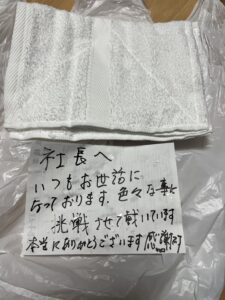 社長へ
いつもお世話に
なっております。色々な事に
挑戦させて戴いています
本当にありがとうございます